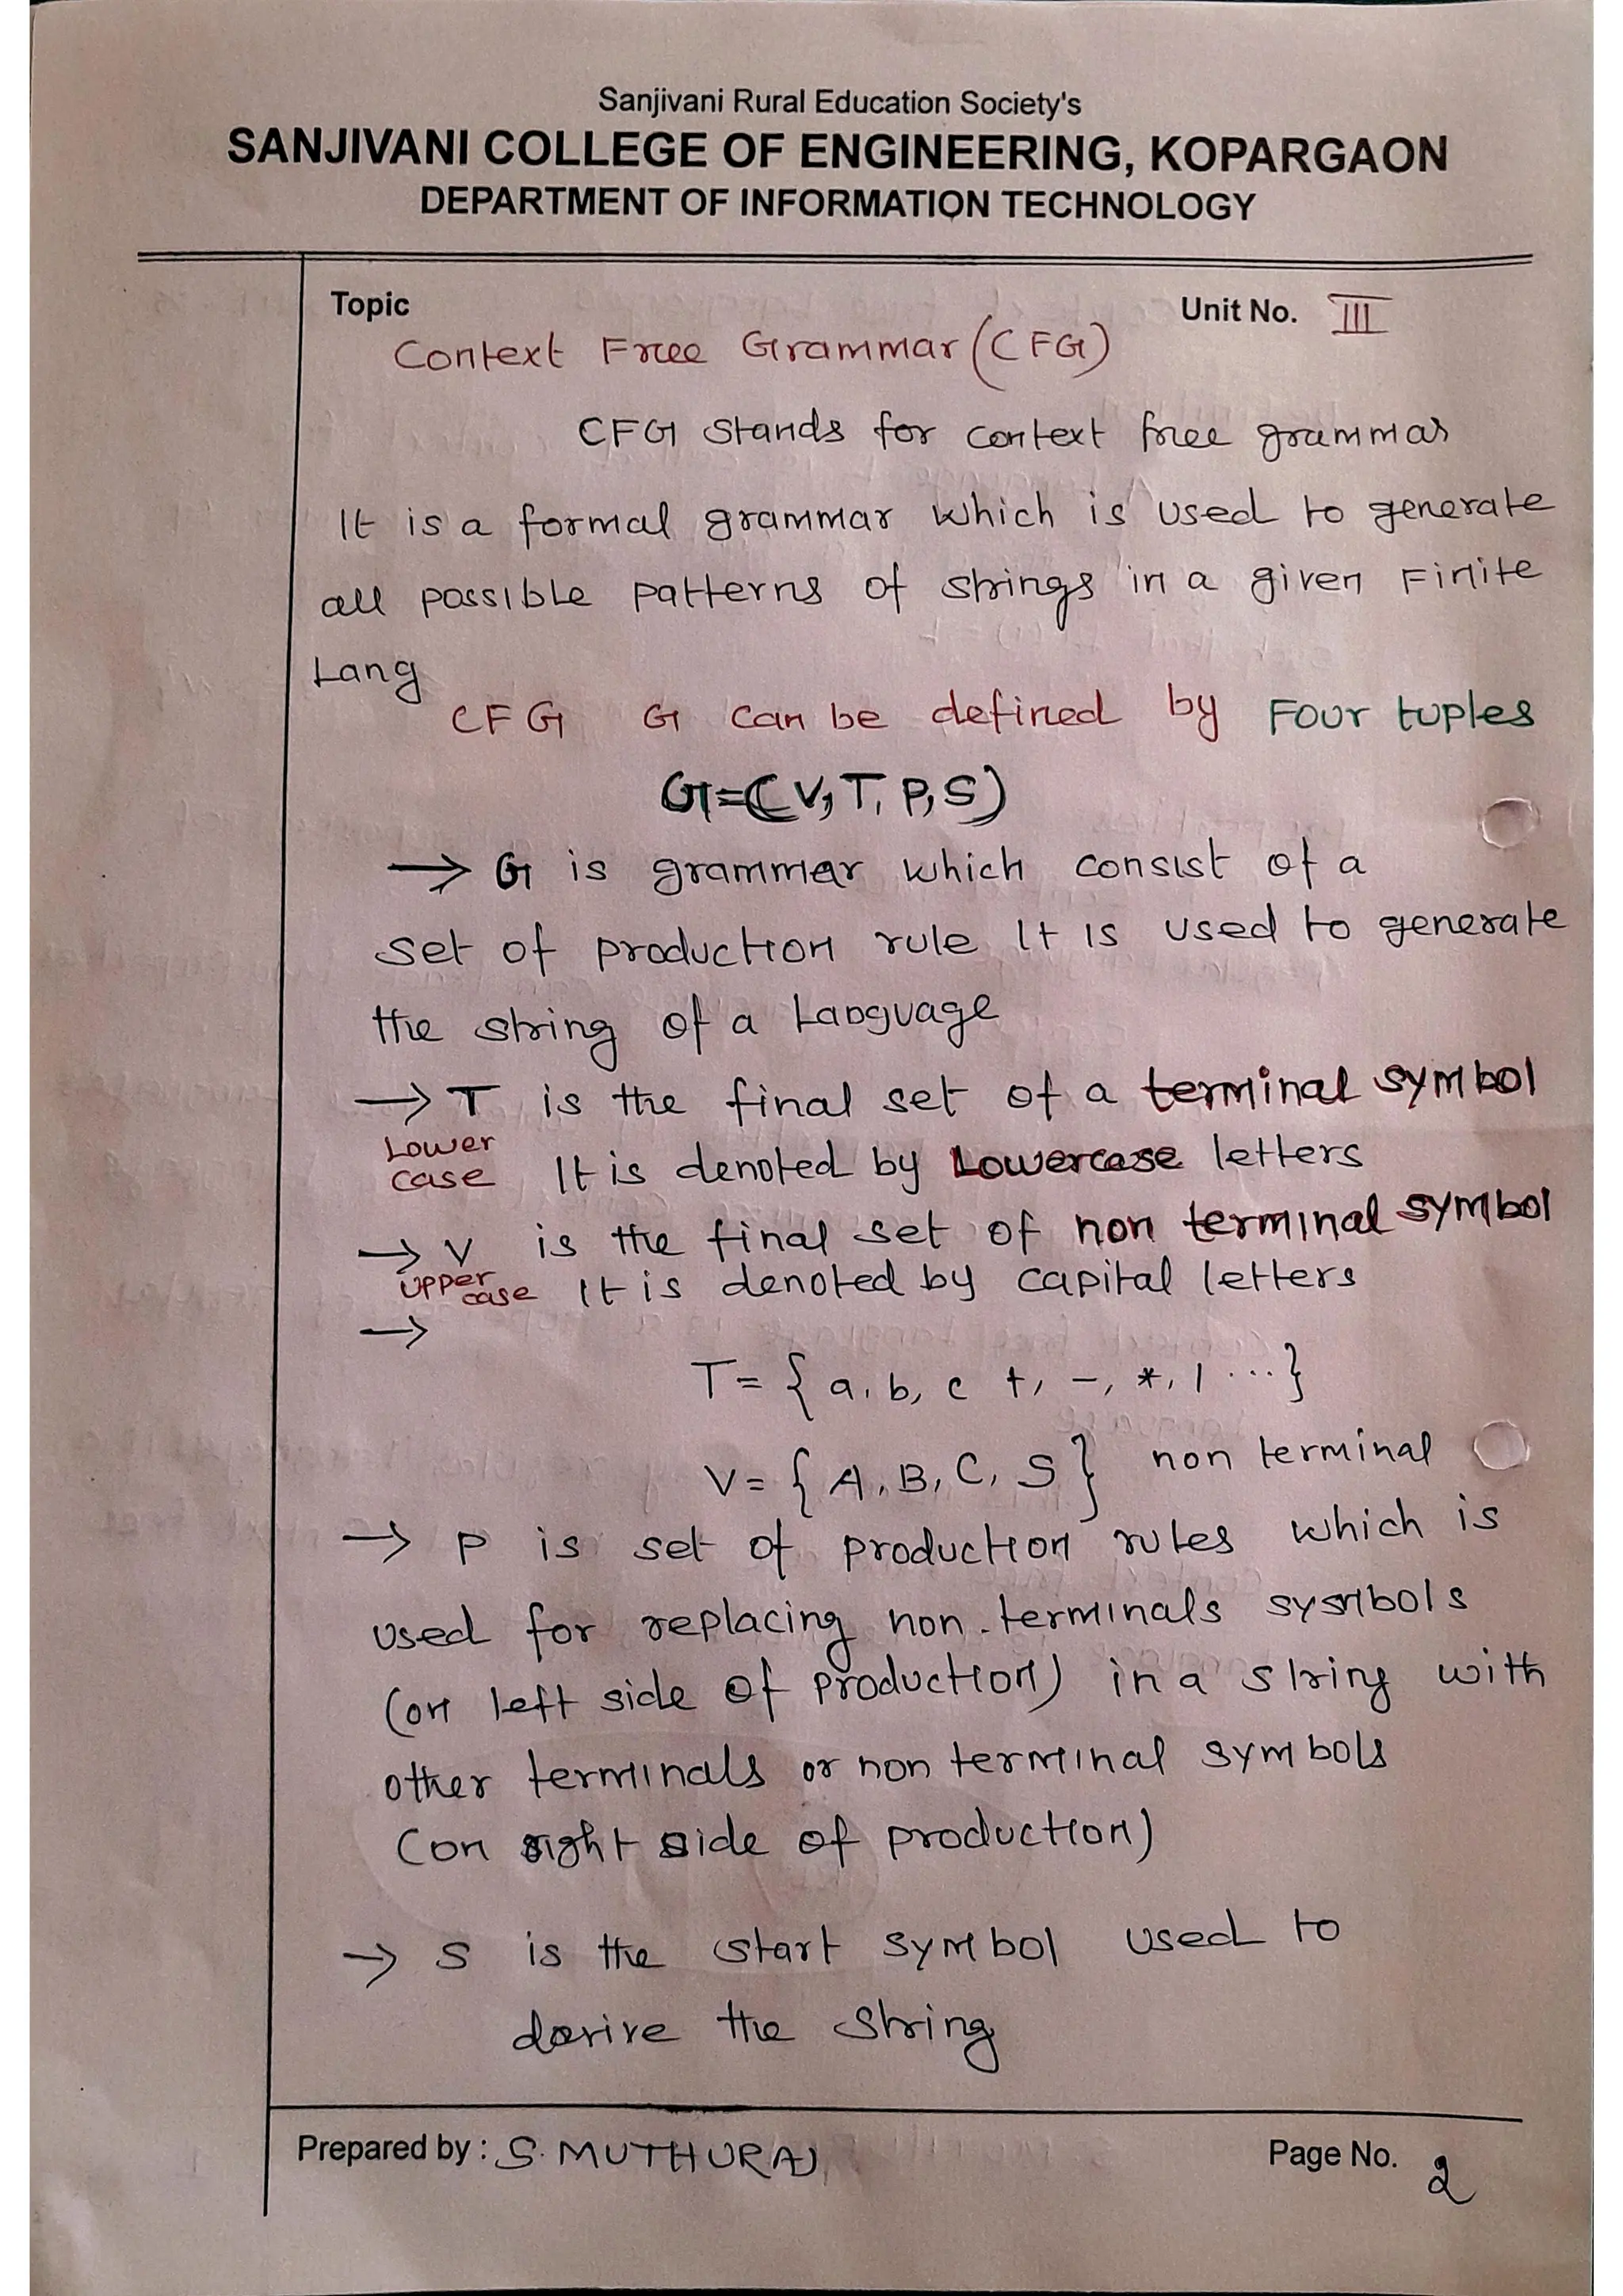 Sanjivani Rural Education Society's
SANJIVANI COLLEGE OF ENGINEERING, KOPARGAON
DEPARTMENT OF INFORMATION TECHNOLOGY
Topic Unit No. III
Context Free Grammar (CFG)
CFG stands for context free grammar
It is a formal grammar which is used to generate
all possible patterns of strings in a given Finite
Lang
CFG G can be defined by Four tuples
G=(V,T,P,S)
→ G is grammar which consist of a
set of production rule It is used to generate
the string of a Language
→ T is the final set of a terminal symbol
Lower
case It is denoted by Lowercase letters
→ V is the final set of non terminal symbol
upper
case It is denoted by capital letters
→
T= { a, b, c +, -, *, / ... }
V= { A, B, C, S } non terminal
→ P is set of production rules which is
used for replacing non-terminals sysmbols
(on left side of production) in a string with
other terminals or non terminal symbols
(on right side of production)
→ S is the start symbol used to
derive the string
Prepared by : S. MUTHURAJ Page No. 2